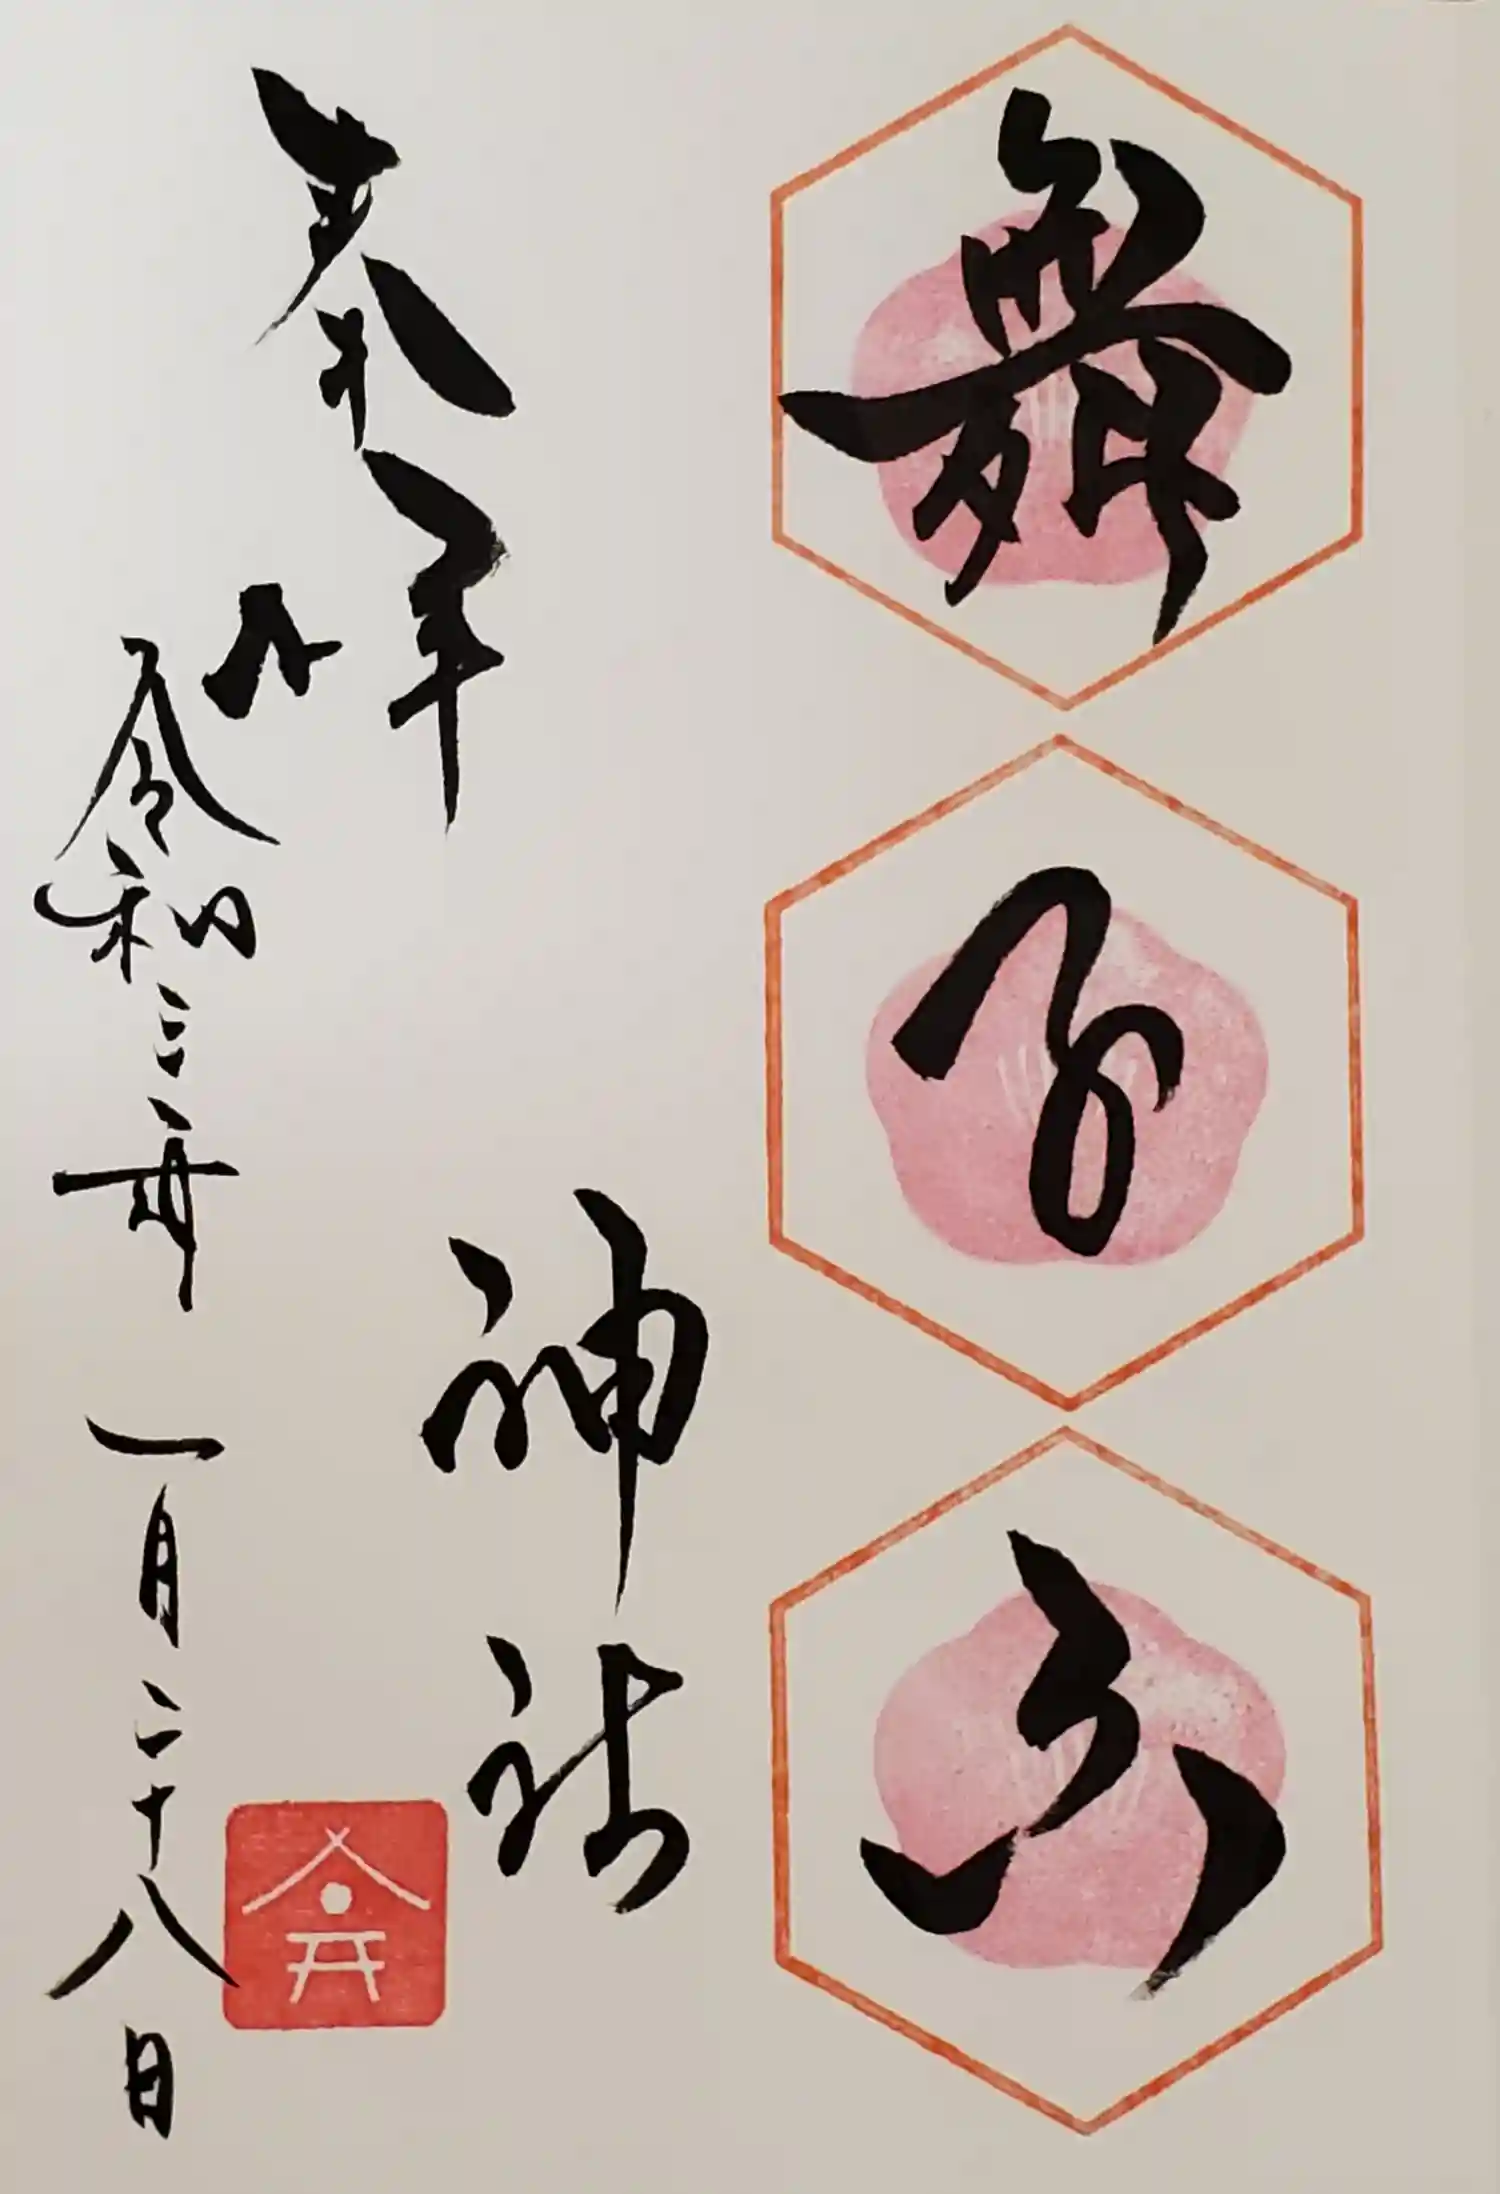 舞子六
神社
奉拝
令和三年一月二十八日